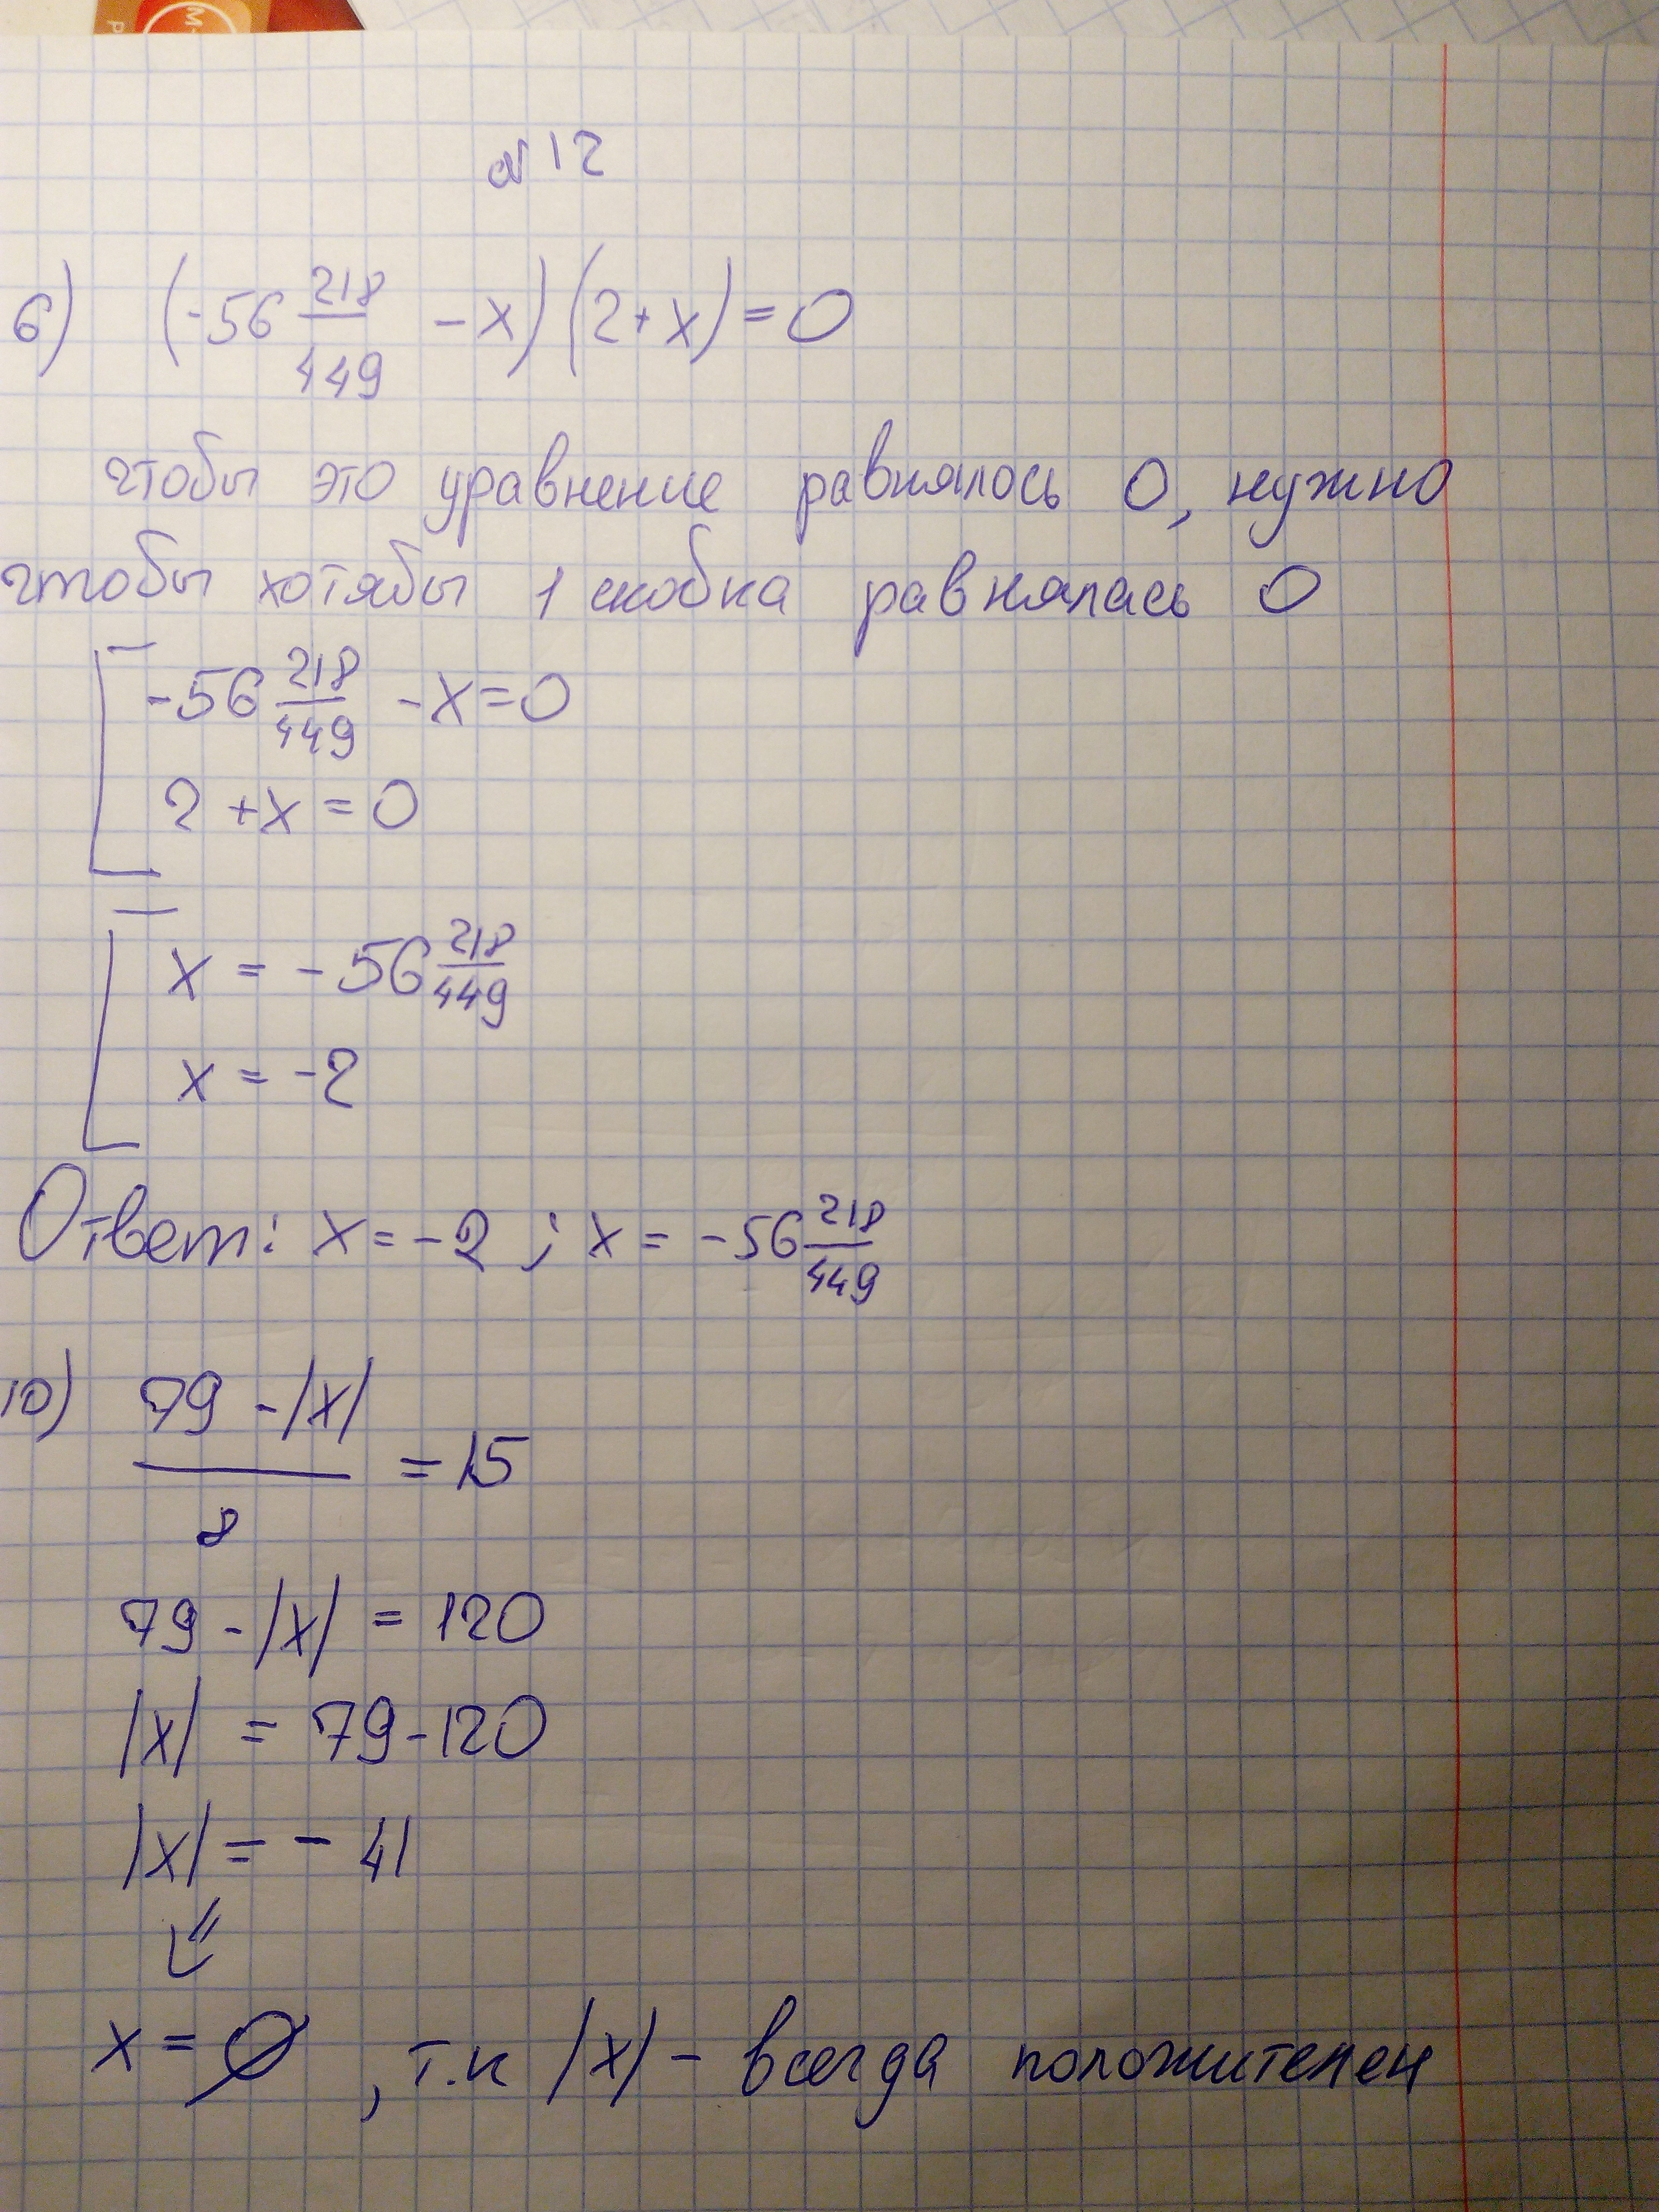 №12
6) (-56 218/449 - x)(2+x)=0
чтобы это уравнение равнялось 0, нужно
чтобы хотябы 1 скобка равнялась 0
-56 218/449 - x=0
2+x=0
x = -56 218/449
x = -2
Ответ: x=-2 ; x = -56 218/449
10) (79 -|x|)/8 =15
79 -|x| = 120
|x| = 79-120
|x| = - 41
⇓
x = ∅, т.к |x| - всегда положителен